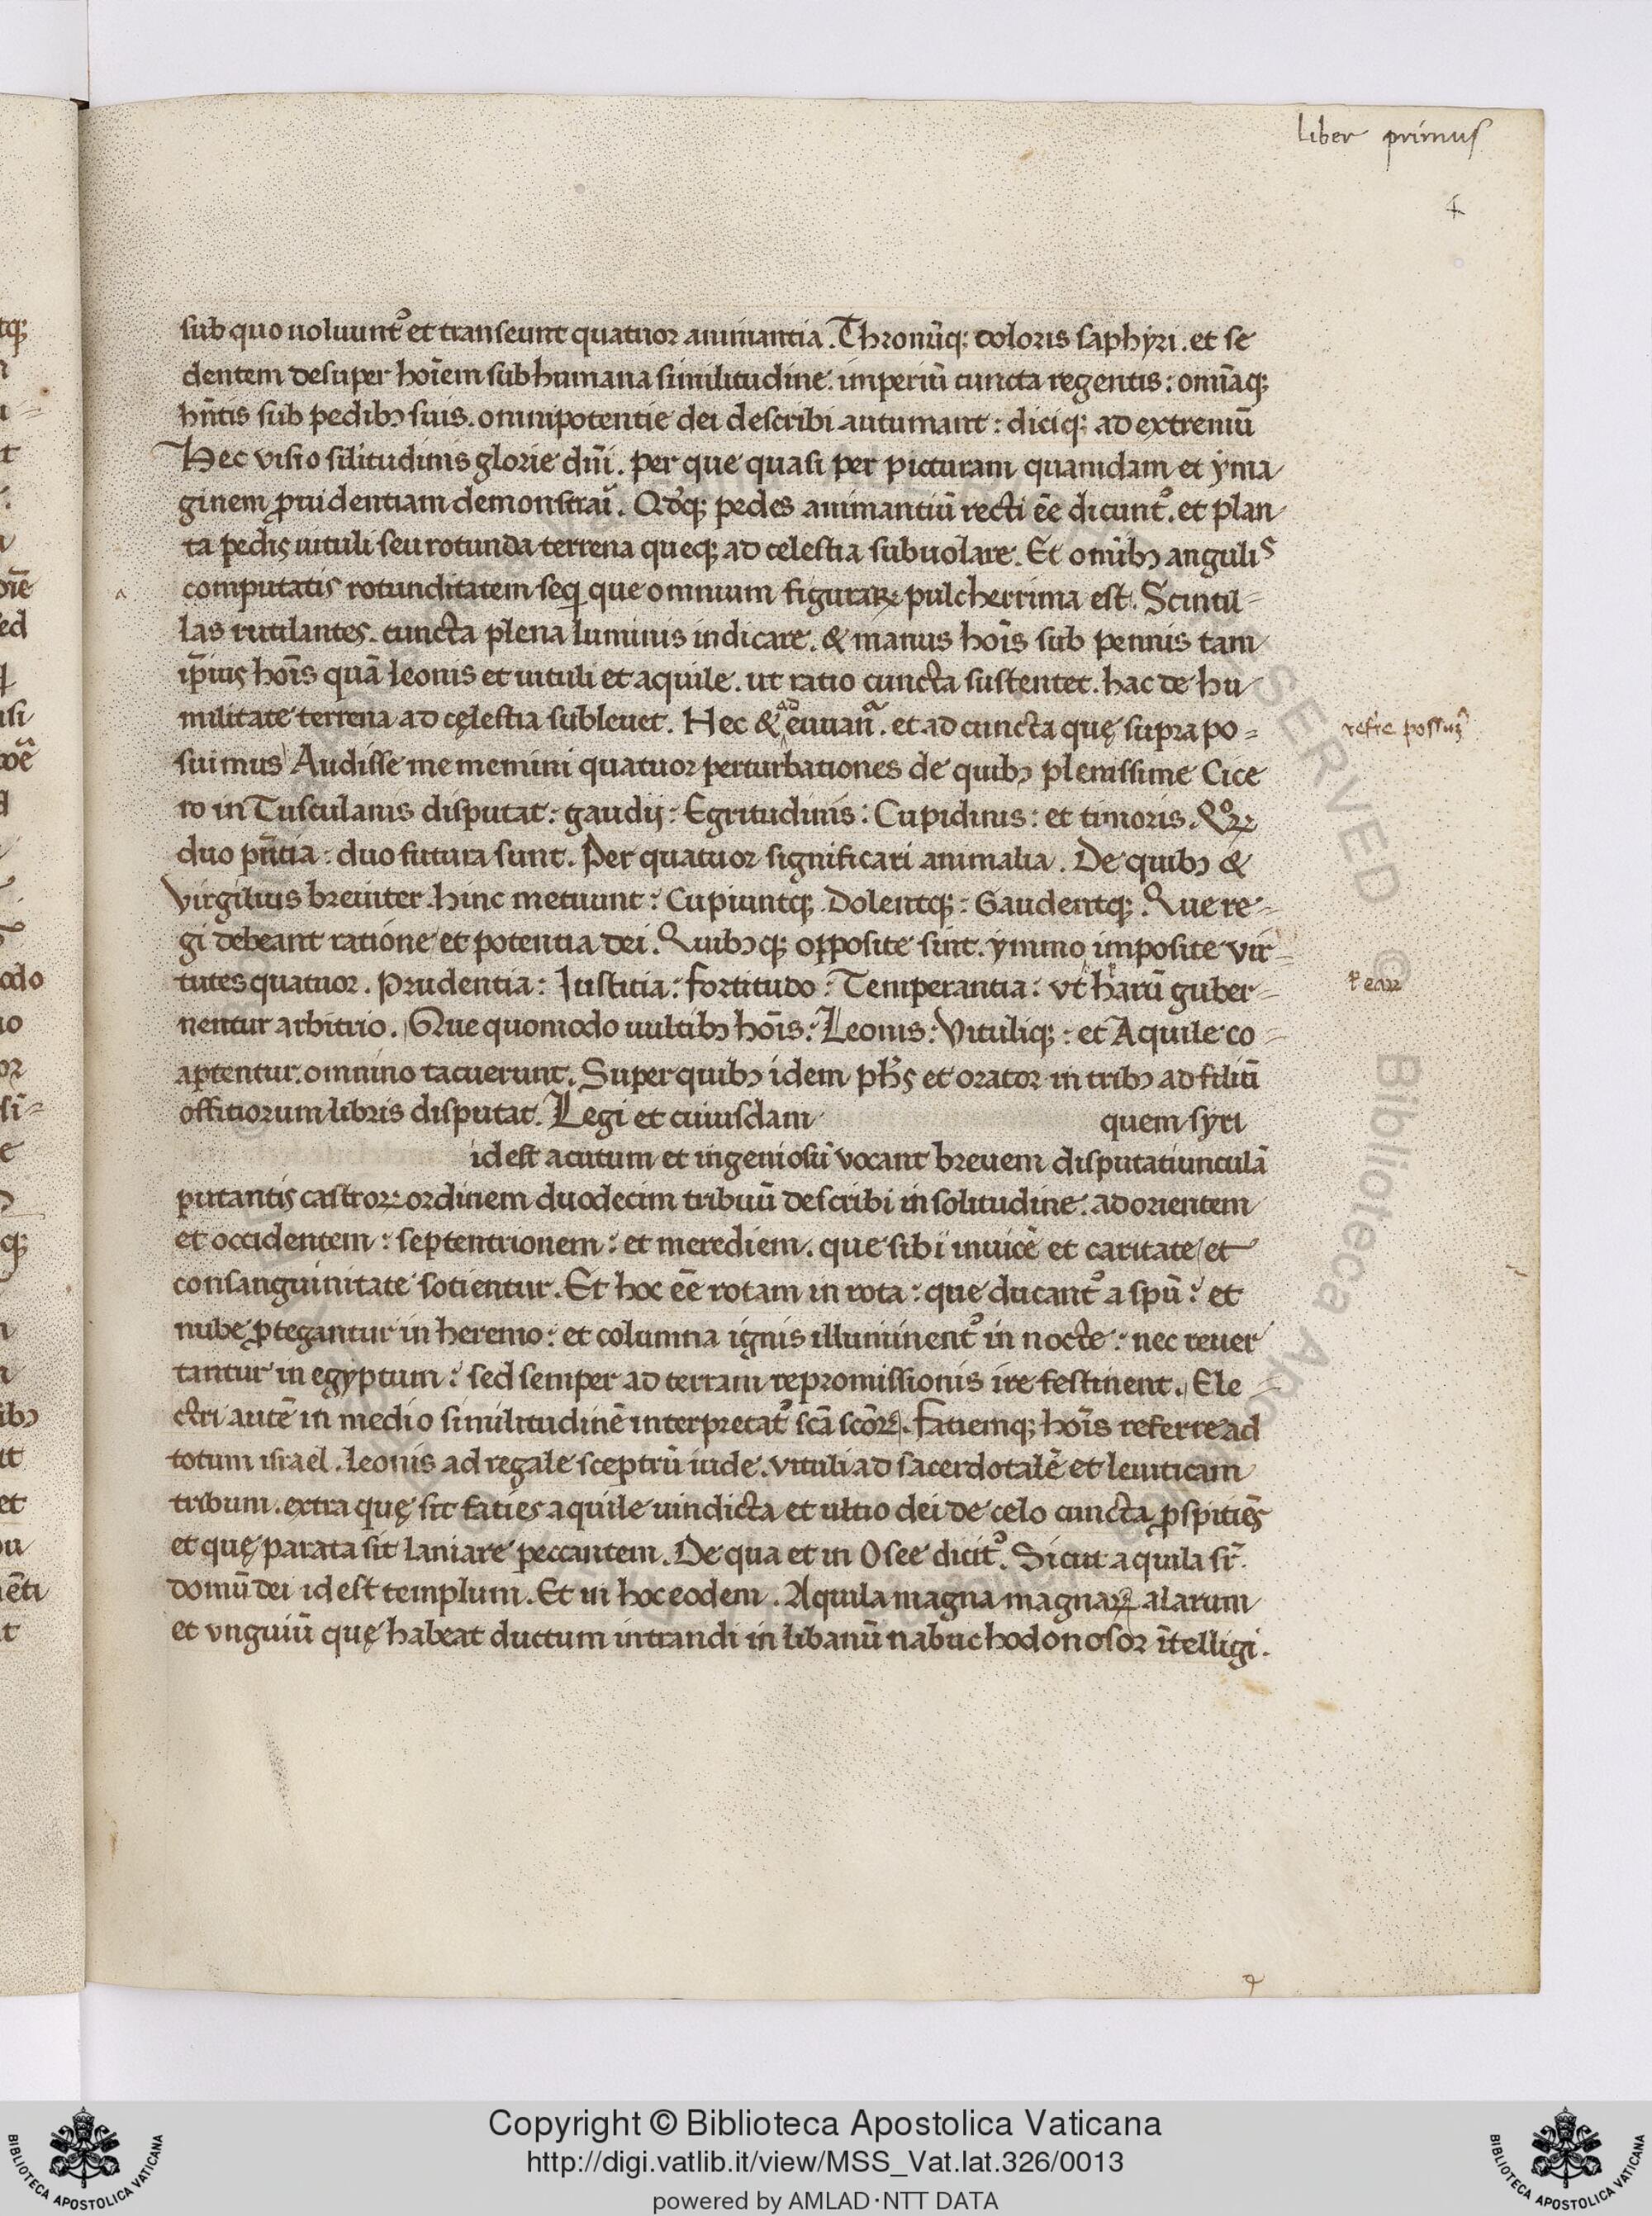 liber primus
4
sub quo uoluunt᷒ et transeunt quatuor animantia. Thronūq; coloris saphyri. et se
dentem desuper hoīem sub humana similitudine. imperiū cuncta regentis: omīaq;
hn̄tis sub pedibꝫ suis. omnipotentie dei describi autumant: diciq; ad extremū
Hec visio silitudinis glorie dn̄i. per que quasi per picturam quamdam et yma
ginem ꝓuidentiam demonstrat᷒. Qd̛q; pedes animantiū recti eē dicunt᷒. et plan
ta pedis uituli seu rotunda terrena queq; ad celestia subuolare. Et omībꝫ angulis
computatis rotunditatem seqi que omnium figuraꝝ pulcherrima est. Scintil=
las rutilantes. cuncta plena luminis indicare. & manus hoīs sub pennis tam
ip̄ius hoīs quā leonis et uituli et aquile. ut ratio cuncta sustentet. hac de hu
militate terrena ad cęlestia subleuet. Hec & ad euuan̄a. et ad cuncta quę supra po=
refre possum᷒
suimus Audisse me memini quatuor perturbationes de quibꝫ plenissime Cice
ro in Tusculanis disputat: gaudij: Egritudinis: Cupidinis: et timoris. Qoꝝ
duo pn̄tia: duo futura sunt. Per quatuor significari animalia. De quibꝫ &
virgilius breuiter. hinc metuunt: Cupiuntq; Dolentq;: Gaudentq;. Que re=
gi debeant ratione et potentia dei. Quibꝫq; opposite sint. ymmo imposite vir=
tutes quatuor. Prudentia: Iusticia: fortitudo: Temperantia: vt harū guber=
ꝉ eaꝝ
nentur arbitrio. Que quomodo uultibꝫ hoīs: Leonis: Vituliq;: et Aquile co=
aptentur. omnino tacuerunt. Super quibꝫ idem ph̄s et orator in tribꝫ ad filiū
offitiorum libris disputat. Legi et cuiusdam quem syri
id est acutum et ingeniosū vocant breuem disputatiunculā
putantis castroꝝ ordinem duodecim tribuū describi in solitudine. ad orientem
et occidentem: septentrionem: et meridiem. que sibi inuicē et caritate et
consanguinitate sotientur. Et hoc eē rotam in rota: que ducant᷒ a spū: et
nube ꝓtegantur in heremo: et columna ignis illuminent᷒ in nocte: nec reuer
tantur in egyptum: sed semper ad terram repromissionis ire festinent. Ele=
ctri autē in medio similitudinē interpretat᷒ scā scōꝝ. Fatiemq; hoīs referre ad
totum israel. leonis ad regale sceptrū iude. vituli ad sacerdotalē et leuiticam
tribum. extra quę sit faties aquile uindicta et ultio dei de celo cuncta ꝓspitiēs
et quę parata sit laniare peccantem. De qua et in Osee dicit᷒. Sicut aquila sr̄.
domū dei id est templum. Et in hoc eodem. Aquila magna magnaꝝ alarum
et vnguiū quę habeat ductum intrandi in libanū nabuchodonosor ītelligi.
Copyright © Biblioteca Apostolica Vaticana
http://digi.vatlib.it/view/MSS_Vat.lat.326/0013
powered by AMLAD·NTT DATA